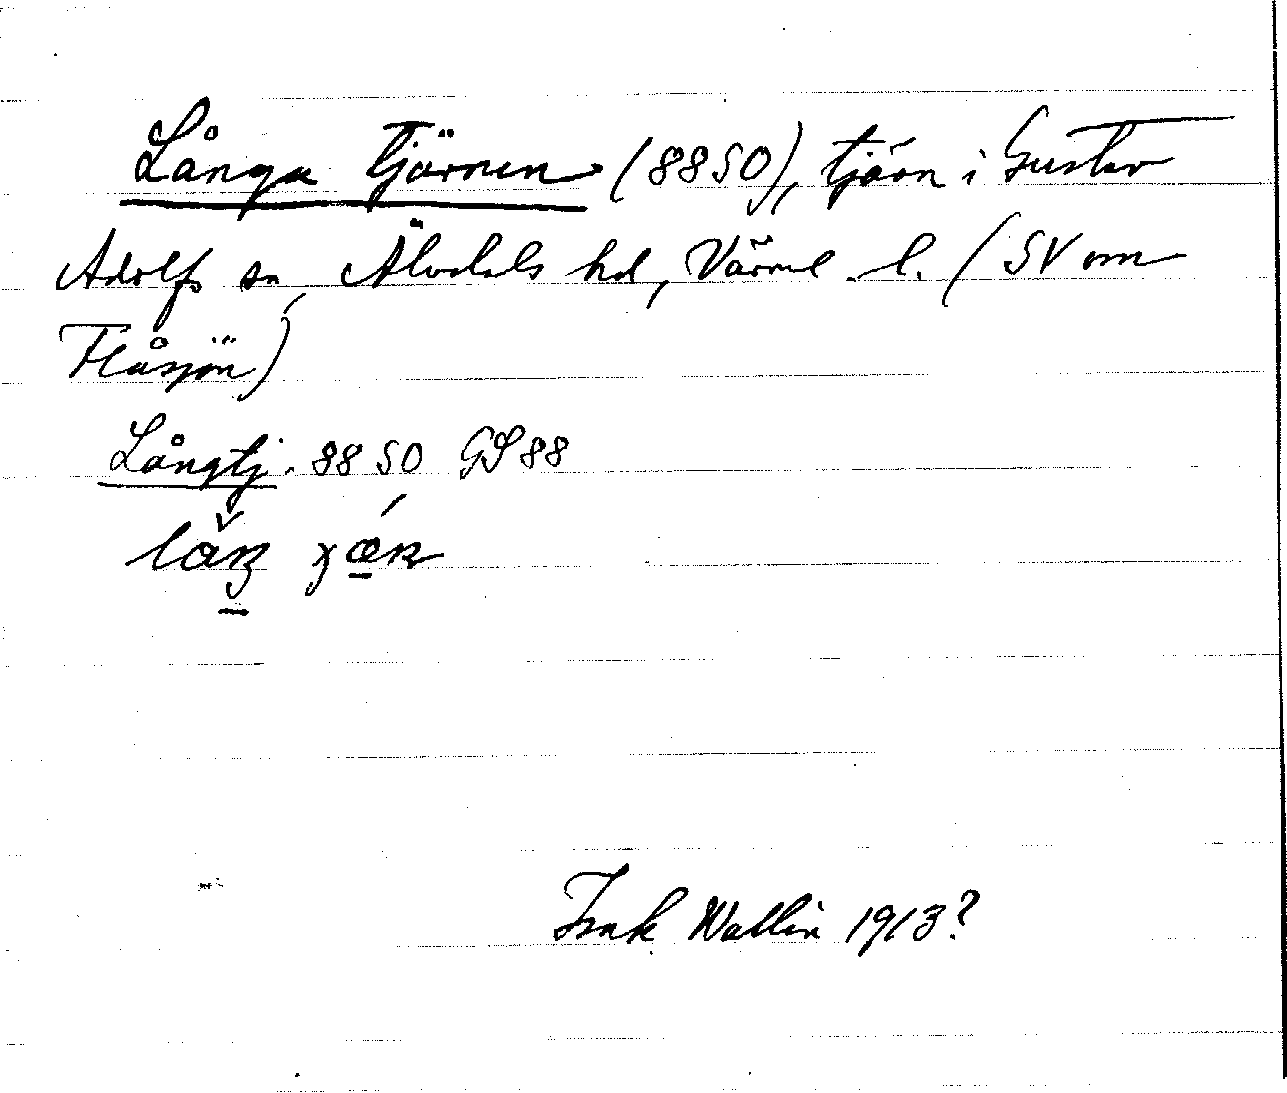 Långa tjärnen (8850), tjärn i Gustav
Adolfs sn, Älvdals hd, Värml l. (SV om
Flåsjön)
Långtj. 8850 GS 88
Isak Wallin 1913?